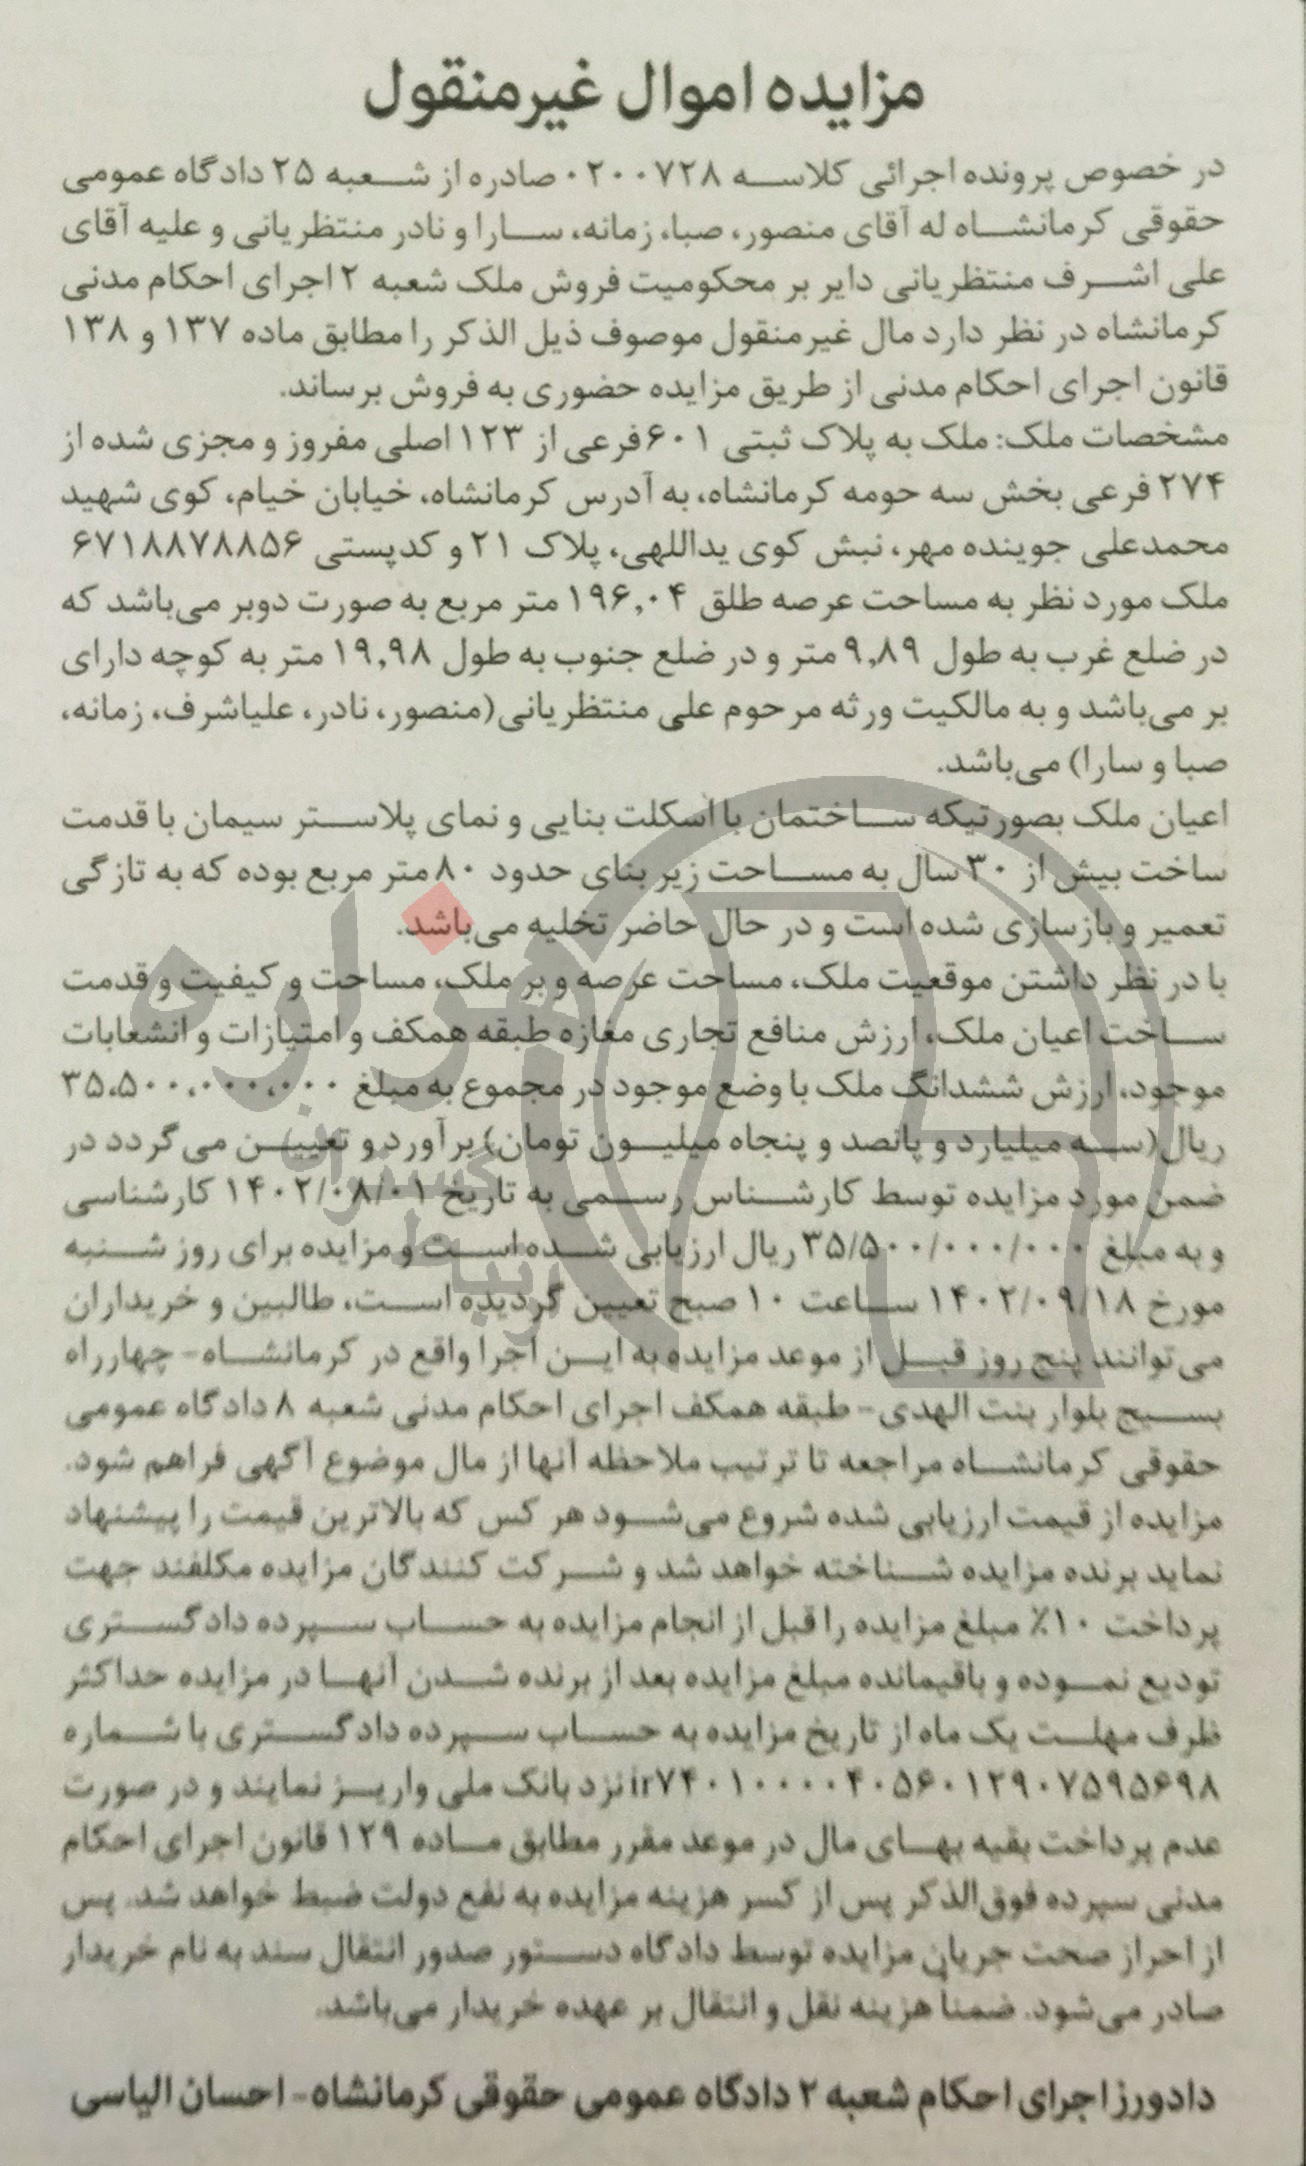 مزایده اموال غیرمنقول
در خصوص پرونده اجرائی کلاسه ۰۲۰۰۷۲۸ صادره از شعبه ۲۵ دادگاه عمومی
حقوقی کرمانشاه له آقای منصور، صبا، زمانه، سارا و نادر منتظریانی و علیه آقای
علی اشرف منتظریانی دایر بر محکومیت فروش ملک شعبه ۲ اجرای احکام مدنی
کرمانشاه در نظر دارد مال غیرمنقول موصوف ذیل الذکر را مطابق ماده ۱۳۷ و ۱۳۸
قانون اجرای احکام مدنی از طریق مزایده حضوری به فروش برساند.
مشخصات ملک: ملک به پلاک ثبتی ۶۰۱ فرعی از ۱۲۳ اصلی مفروز و مجزی شده از
۲۷۴ فرعی بخش سه حومه کرمانشاه، به آدرس کرمانشاه، خیابان خیام، کوی شهید
محمدعلی جوینده مهر، نبش کوی یداللهی، پلاک ۲۱ و کدپستی ۶۷۱۸۸۷۸۸۵۶
ملک مورد نظر به مساحت عرصه طلق ۱۹۶,۰۴ متر مربع به صورت دوبر می‌باشد که
در ضلع غرب به طول ۹,۸۹ متر و در ضلع جنوب به طول ۱۹,۹۸ متر به کوچه دارای
بر می‌باشد و به مالکیت ورثه مرحوم علی منتظریانی(منصور، نادر، علیاشرف، زمانه،
صبا و سارا) می‌باشد.
اعیان ملک بصورتیکه ساختمان با اسکلت بنایی و نمای پلاستر سیمان با قدمت
ساخت بیش از ۳۰ سال به مساحت زیر بنای حدود ۸۰ متر مربع بوده که به تازگی
تعمیر و بازسازی شده است و در حال حاضر تخلیه می‌باشد.
با در نظر داشتن موقعیت ملک، مساحت عرصه و بر ملک، مساحت و کیفیت و قدمت
ساخت اعیان ملک، ارزش منافع تجاری مغازه طبقه همکف و امتیازات و انشعابات
موجود، ارزش ششدانگ ملک با وضع موجود در مجموع به مبلغ ۳۵،۵۰۰،۰۰۰،۰۰۰
ریال(سه میلیارد و پانصد و پنجاه میلیون تومان) برآورد و تعیین می گردد در
ضمن مورد مزایده توسط کارشناس رسمی به تاریخ ۱۴۰۲/۰۸/۰۱ کارشناسی
و به مبلغ ۳۵/۵۰۰/۰۰۰/۰۰۰ ریال ارزیابی شده است و مزایده برای روز شنبه
مورخ ۱۴۰۲/۰۹/۱۸ ساعت ۱۰ صبح تعیین گردیده است، طالبین و خریداران
می‌توانند پنج روز قبل از موعد مزایده به این اجرا واقع در کرمانشاه- چهارراه
بسیج بلوار بنت الهدی- طبقه همکف اجرای احکام مدنی شعبه ۸ دادگاه عمومی
حقوقی کرمانشاه مراجعه تا ترتیب ملاحظه آنها از مال موضوع آگهی فراهم شود.
مزایده از قیمت ارزیابی شده شروع می‌شود هر کس که بالاترین قیمت را پیشنهاد
نماید برنده مزایده شناخته خواهد شد و شرکت کنندگان مزایده مکلفند جهت
پرداخت ۱۰٪ مبلغ مزایده را قبل از انجام مزایده به حساب سپرده دادگستری
تودیع نموده و باقیمانده مبلغ مزایده بعد از برنده شدن آنها در مزایده حداکثر
ظرف مهلت یک ماه از تاریخ مزایده به حساب سپرده دادگستری با شماره
ir۷۴۰۱۰۰۰۰۴۰۵۶۰۱۲۹۰۷۵۹۵۶۹۸ نزد بانک ملی واریز نمایند و در صورت
عدم پرداخت بقیه بهای مال در موعد مقرر مطابق ماده ۱۲۹ قانون اجرای احکام
مدنی سپرده فوق‌الذکر پس از کسر هزینه مزایده به نفع دولت ضبط خواهد شد. پس
از احراز صحت جریان مزایده توسط دادگاه دستور صدور انتقال سند به نام خریدار
صادر می‌شود. ضمناً هزینه نقل و انتقال بر عهده خریدار می‌باشد.
دادورز اجرای احکام شعبه ۲ دادگاه عمومی حقوقی کرمانشاه- احسان الیاسی
هزاره